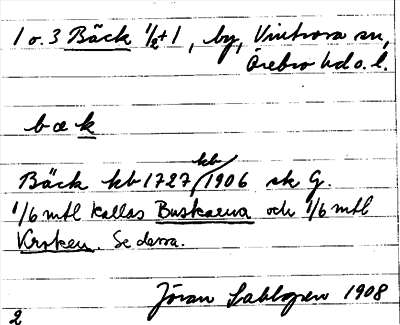 1 o. 3 Bäck 1/2+1, by, Vintrosa sn,
Örebro hd o. l.
bæk
kb
Bäck kb 1727, 1906 sk G.
1/6 mtl kallas Buskarna och 1/6 mtl
Kroken. Se dessa.
Jöran Sahlgren 1908
2